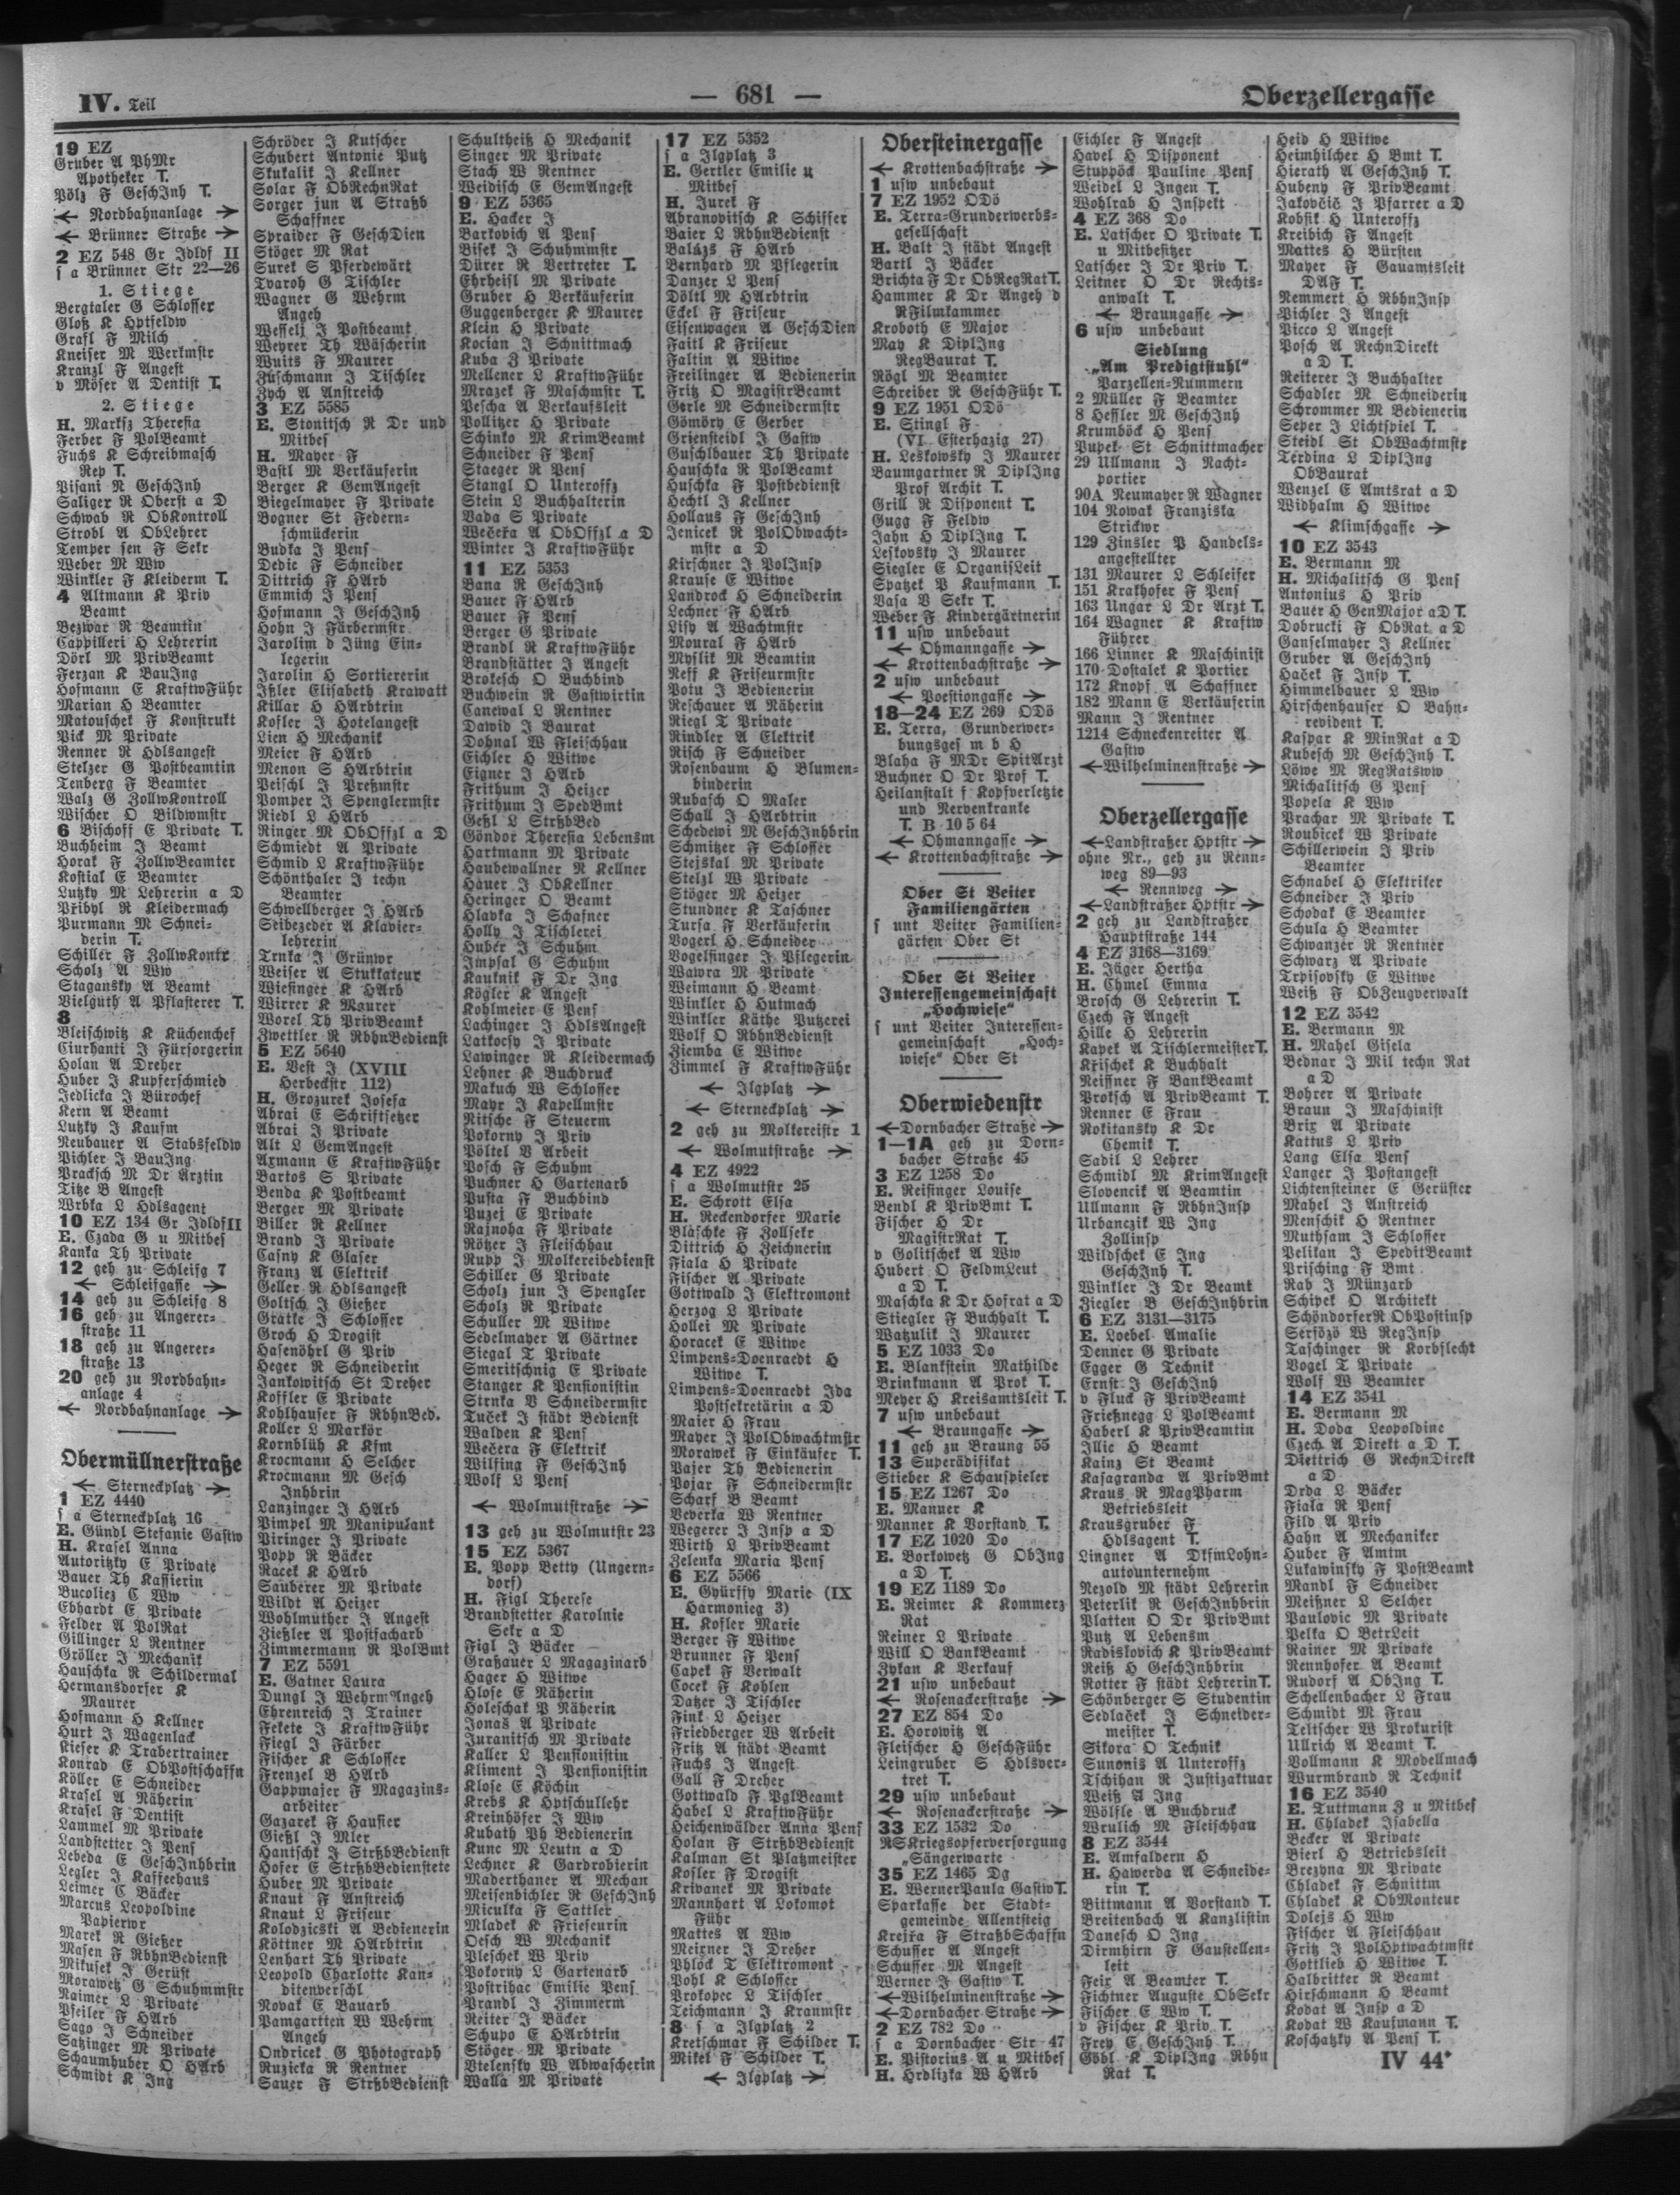 IV. Teil
— 681 —
Oberzellergasse
19 EZ
Gruber A PhMr
Apotheker T.
Pölz F GeschInh T.
← Nordbahnanlage →
← Brünner Straße →
2 EZ 548 Gr Jdldf II
s a Brünner Str 22—26
1. Stiege
Bergtaler G Schlosser
Gloß K Hptfeldw
Grafl F Milch
Kneiser M Werkmstr
Kranzl F Angest
v Möser A Dentist T.
2. Stiege
H. Marksz Theresia
Ferber F PolBeamt
Fuchs K Schreibmasch
Rep T.
Pisani R GeschInh
Saliger R Oberst a D
Schwab R ObKontroll
Strobl A ObLehrer
Temper sen F Sekr
Weber M Ww
Winkler F Kleiderm T.
4 Altmann K Priv
Beamt
Bezwar R Beamtin
Cappilleri H Lehrerin
Dörl M PrivBeamt
Ferzan K BauIng
Hofmann E KraftwFühr
Marian H Beamter
Matouschek F Konstrukt
Pick M Private
Renner R Hdlsangest
Stelzer G Postbeamtin
Tenberg F Beamter
Walz G ZollwKontroll
Wischer O Bildwmstr
6 Bischoff E Private T.
Buchheim J Beamt
Horak F ZollwBeamter
Kostial E Beamter
Lutzky M Lehrerin a D
Pribyl R Kleidermach
Purmann M Schnei-
derin T.
Schiller F ZollwKontr
Scholz A Ww
Stagansky A Beamt
Vielguth A Pflasterer T.
8
Bleischwitz K Küchenchef
Ciurhanti J Fürsorgerin
Holan A Dreher
Huber J Kupferschmied
Jedlicka J Bürochef
Kern A Beamt
Lutzky J Kaufm
Neubauer A Stabsfeldw
Pichler J BauIng
Pracksch M Dr Ärztin
Titze B Angest
Wrbka L Hdlsagent
10 EZ 134 Gr JdldfII
E. Czada G u Mitbes
Kanka Th Private
12 geh zu Schleifg 7
← Schleifgasse →
14 geh zu Schleifg 8
16 geh zu Angerer-
straße 11
18 geh zu Angerer-
straße 13
20 geh zu Nordbahn-
anlage 4
← Nordbahnanlage →
Obermüllnerstraße
← Sterneckplatz →
1 EZ 4440
s a Sterneckplatz 16
E. Gündl Stefanie Gastw
H. Krasel Anna
Autoritzky E Private
Bauer Th Kassierin
Bucoliez C Ww
Ebhardt E Private
Felder A PolRat
Gillinger L Rentner
Gröller J Mechanik
Hauschka R Schildermal
Hermansdorfer K
Maurer
Hofmann H Kellner
Hurt J Wagenlack
Kieser K Trabertrainer
Konrad E ObPostschaffn
Köller E Schneider
Krasel A Näherin
Krasel F Dentist
Lammel M Private
Landstetter J Pens
Lebeda E GeschInhbrin
Legler J Kaffeehaus
Leimer C Bäcker
Marcus Leopoldine
Papierwr
Marek R Gießer
Masen F RbhnBedienst
Mikusek J Gerüst
Morawetz G Schuhmmstr
Naimer L Private
Pfeiler F HArb
Sago J Schneider
Satzinger M Private
Schaumhuber O HArb
Schmidt K Ing
Schröder J Kutscher
Schubert Antonie Putz
Skukalik J Kellner
Solar F ObRechnRat
Sorger jun A Straßb
Schaffner
Spraider F GeschDien
Stöger M Rat
Surek S Pferdewärt
Tvaroh G Tischler
Wagner G Wehrm
Angeh
Wesseli J Postbeamt
Weyrer Th Wäscherin
Wuits F Maurer
Züschmann J Tischler
Zych A Anstreich
3 EZ 5585
E. Stonitsch R Dr und
Mitbes
H. Mayer F
Bastl M Verkäuferin
Berger K GemAngest
Biegelmayer F Private
Bogner St Federn-
schmückerin
Budka J Pens
Dedic F Schneider
Dittrich F HArb
Emmich J Pens
Hofmann J GeschInh
Hohn J Färbermstr
Jarolim d Jüng Ein-
legerin
Jarolin H Sortiererin
Ißler Elisabeth Krawatt
Killar H HArbtrin
Kofler J Hotelangest
Lien H Mechanik
Meier F HArb
Menon S HArbtrin
Peischl J Preßmstr
Pomper J Spenglermstr
Riedl L HArb
Ringer M ObOffzl a D
Schmiedt A Private
Schmid L KraftwFühr
Schönthaler J techn
Beamter
Schwellberger J HArb
Seibezeder A Klavier-
lehrerin
Trnka J Grünwr
Weiser A Stukkateur
Wiesinger K HArb
Wirrer K Maurer
Worel Th PrivBeamt
Zwettler R RbhnBedienst
5 EZ 5640
E. Vest J (XVIII
Herbeckstr 112)
H. Grozurek Josefa
Abrai E Schriftsetzer
Abrai J Private
Alt L GemAngest
Axmann E KraftwFühr
Bartos S Private
Benda K Postbeamt
Berger M Private
Biller R Kellner
Brand J Private
Casny K Glaser
Franz A Elektrik
Geller R Hdlsangest
Goltsch J Gießer
Gratke J Schlosser
Groch H Drogist
Hasenöhrl G Priv
Heger R Schneiderin
Jankowitsch St Dreher
Koffler E Private
Kohlhauser F RbhnBed.
Koller L Markör
Kornblüh K Kfm
Krocmann H Selcher
Krocmann M Gesch
Inhbrin
Lanzinger J HArb
Pimpel M Manipulant
Piringer J Private
Popp R Bäcker
Racek K HArb
Sauberer M Private
Wildt A Heizer
Wohlmuther J Angest
Zießler A Postfacharb
Zimmermann R PolBmt
7 EZ 5591
E. Gatner Laura
Dungl J WehrmAngeh
Ehrenreich J Trainer
Fekete J KraftwFühr
Fiegl J Färber
Fischer K Schlosser
Frenzel B HArb
Gappmaier F Magazins-
arbeiter
Gazarek F Hausier
Gießl J Mler
Hantschk J StrßbBedienst
Hofer E StrßbBedienstete
Huber M Private
Knaut F Anstreich
Knaut L Friseur
Kolodzieski A Bedienerin
Köttner M HArbtrin
Lenhart Th Private
Leopold Charlotte Kan-
ditenverschl
Novak E Bauarb
Pamgartten W Wehrm
Angeh
Ondricek G Photograph
Ruzicka R Rentner
Sauer F StrßbBedienst
Schultheiß H Mechanik
Singer M Private
Stach W Rentner
Weidisch E GemAngest
9 EZ 5365
E. Hacker J
Barkovich A Pens
Bisek J Schuhmmstr
Dürer R Vertreter T.
Ehrheisl M Private
Gruber H Verkäuferin
Guggenberger K Maurer
Klein H Private
Kocian J Schnittmach
Kuba Z Private
Mellener L KraftwFühr
Mrazek F Maschmstr T.
Pescha A Verkaufsleit
Pollitzer H Private
Schinko M KrimBeamt
Schneider F Pens
Staeger R Pens
Stangl O Unteroffz
Stein L Buchhalterin
Vada S Private
Večeřa A ObOffzl a D
Winter J KraftwFühr
11 EZ 5353
Bana R GeschInh
Bauer F HArb
Bauer F Pens
Berger G Private
Brandl R KraftwFühr
Brandstätter J Angest
Brokesch O Buchbind
Buchwein R Gastwirtin
Canewal L Rentner
David J Baurat
Dohnal W Fleischhau
Eichler H Witwe
Eigner J HArb
Frithum J Heizer
Frithum J SpedBmt
Geßl L StrßbBed
Göndor Theresia Lebensm
Hartmann M Private
Haubewallner R Kellner
Hauer J ObKellner
Heringer O Beamt
Hlavka J Schafner
Holly J Tischlerei
Huber J Schuhm
Impsal G Schuhm
Kautnik F Dr Ing
Kögler K Angest
Kohlmeier E Pens
Lachinger J HdlsAngest
Latkocsy J Private
Lawinger R Kleidermach
Lehner K Buchdruck
Makuch W Schlosser
Mayr J Kapellmstr
Nitsche F Steuerm
Pokorny J Priv
Pöltel V Arbeit
Posch F Schuhm
Puchner H Gartenarb
Pusta F Buchbind
Puzej E Private
Rajnoha F Private
Rötzer J Fleischhau
Rupp J Molkereibedienst
Schiller G Private
Scholz jun J Spengler
Scholz R Private
Schuller M Witwe
Sedelmayer A Gärtner
Siegal T Private
Smeritschnig E Private
Stanger K Pensionistin
Sirnka V Schneidermstr
Tuček J städt Bedienst
Walden K Pens
Wečera F Elektrik
Wilfing F GeschInh
Wolf L Pens
← Wolmutstraße →
13 geh zu Wolmutstr 23
15 EZ 5367
E. Popp Betty (Ungern-
dorf)
H. Figl Therese
Brandstetter Karolnie
Sekr a D
Figl J Bäcker
Graßauer L Magazinarb
Hager H Witwe
Hlose E Näherin
Holeschak P Näherin
Jonaš A Private
Juranitsch M Private
Kaller L Pensionistin
Kliment J Pensionistin
Klose E Köchin
Krebs K Hptschullehr
Kreinhöfer J Ww
Kubath Ph Bedienerin
Kunc M Leutn a D
Lechner K Gardrobierin
Maderthaner A Mechan
Meisenbichler R GeschInh
Miculka F Sattler
Mladek K Frieseurin
Oesch W Mechanik
Pleschek W Priv
Pokorny L Gartenarb
Postrihac Emilie Pens
Prandl J Zimmerm
Reiter J Bäcker
Schupo E HArbtrin
Stöger M Private
Vielensky W Abwascherin
Walla M Private
17 EZ 5352
s a Ilgplatz 3
E. Gertler Emilie u
Mitbes
H. Jurek F
Abranovitsch K Schiffer
Baier L RbhnBedienst
Balázs F HArb
Bernhard M Pflegerin
Danzer L Pens
Döltl M HArbtrin
Eckel F Friseur
Eisenwagen A GeschDien
Faitl K Friseur
Faltin A Witwe
Freilinger A Bedienerin
Fritz O MagistrBeamt
Gerle M Schneidermstr
Gömöry E Gerber
Griensteidl J Gastw
Guschlbauer Th Private
Hauschka R PolBeamt
Huschka F Postbedienst
Hechtl J Kellner
Hollaus F GeschInh
Jenicek R PolObwacht-
mstr a D
Kirschner J PolInsp
Krause E Witwe
Landrock H Schneiderin
Lechner F HArb
Lisy A Wachtmstr
Moural F HArb
Myslik M Beamtin
Neff K Friseurmstr
Potu J Bedienerin
Reschauer A Näherin
Riegl T Private
Rindler A Elektrik
Risch F Schneider
Rosenbaum H Blumen-
binderin
Rubasch O Maler
Schall J HArbtrin
Schedewi M GeschInhbrin
Schmitzer F Schlosser
Stejskal M Private
Stelzl W Private
Stöger M Heizer
Stundner K Taschner
Tursa F Verkäuferin
Vogerl H Schneider
Vogelsinger J Pflegerin
Wawra M Private
Weimann H Beamt
Winkler H Hutmach
Winkler Käthe Putzerei
Wolf O RbhnBedienst
Ziemba E Witwe
Zimmel F KraftwFühr
← Ilgplatz →
← Sterneckplatz →
2 geh zu Molkereistr 1
← Wolmutstraße →
4 EZ 4922
s a Wolmutstr 25
E. Schrott Elsa
H. Reckendorfer Marie
Blaschke F Zollsekr
Dittrich H Zeichnerin
Fiala H Private
Fischer A Private
Gottwald J Elektromont
Herzog L Private
Hollei M Private
Horacek E Witwe
Limpens-Doenraedt H
Witwe T.
Limpens-Doenraedt Ida
Postsekretärin a D
Maier H Frau
Mayer J PolObwachtmstr
Morawek F Einkäufer T.
Pajer Th Bedienerin
Pojar F Schneidermstr
Scharf B Beamt
Veverka W Rentner
Wegerer J Insp a D
Wirth L PrivBeamt
Zelenka Maria Pens
6 EZ 5566
E. Gyürffy Marie (IX
Harmonieg 3)
H. Kofler Marie
Berger F Witwe
Brunner F Pens
Capek F Verwalt
Cocek F Kohlen
Datzer J Tischler
Fink L Heizer
Friedberger W Arbeit
Fritz A städt Beamt
Fuchs J Angest
Gall F Dreher
Gottwald F PglBeamt
Habel L KraftwFühr
Heichenwälder Anna Pens
Holan F StrßbBedienst
Kalman St Platzmeister
Kosler F Drogist
Krivanek M Private
Mannhart A Lokomot
Führ
Mattes A Ww
Meixner J Dreher
Phlöck T Elektromont
Pohl K Schlosser
Prokopec L Tischler
Teichmann J Kranmstr
8 s a Ilgplatz 2
Kretschmar F Schilder T.
Mikel F Schilder T.
← Ilgplatz →
Obersteinergasse
← Krottenbachstraße →
1 usw unbebaut
7 EZ 1952 ODö
E. Terra-Grunderwerbs-
gesellschaft
H. Balt J städt Angest
Bartl J Bäcker
Brichta F Dr ObRegRat T.
Hammer K Dr Angeh d
RFilmkammer
Kroboth E Major
May K DiplIng
RegBaurat T.
Rögl M Beamter
Schreiber R GeschFühr T.
9 EZ 1951 ODö
E. Stingl F
(VI Esterhazig 27)
H. Leskowsky J Maurer
Baumgartner R DiplIng
Prof Archit T.
Grill R Disponent T.
Gugg F Feldw
Jahn H DiplIng T.
Leskovsky J Maurer
Siegler E OrganisLeit
Spatzek P Kaufmann T.
Vasa V Sekr T.
Weber F Kindergärtnerin
11 usw unbebaut
← Ohmanngasse →
← Krottenbachstraße →
2 usw unbebaut
← Poestiongasse →
18—24 EZ 269 ODö
E. Terra, Grunderwer-
bungsges m b H
Blaha F MDr SpitArzt
Buchner O Dr Prof T.
Heilanstalt f Kopfverletzte
und Nervenkranke
T. B 10 5 64
← Ohmanngasse →
← Krottenbachstraße →
Ober St Veiter
Familiengärten
s unt Veiter Familien-
gärten Ober St
Ober St Veiter
Interessengemeinschaft
„Hochwiese“
s unt Veiter Interessen-
gemeinschaft „Hoch-
wiese“ Ober St
Oberwiedenstr
← Dornbacher Straße →
1—1A geh zu Dorn-
bacher Straße 45
3 EZ 1258 Do
E. Reisinger Louise
Bendl K PrivBmt T.
Fischer H Dr
MagistrRat T.
v Golitschek A Ww
Hubert O FeldmLeut
a D T.
Maschka K Dr Hofrat a D
Stiegler F Buchhalt T.
Watzulik J Maurer
5 EZ 1033 Do
E. Blankstein Mathilde
Brinkmann A Prok T.
Meyer H Kreisamtsleit T.
7 usw unbebaut
← Braungasse →
11 geh zu Braung 55
13 Superädifikat
Stieber K Schauspieler
15 EZ 1267 Do
E. Manner K
Manner K Vorstand T.
17 EZ 1020 Do
E. Borkowetz G ObIng
a D T.
19 EZ 1189 Do
E. Reimer K Kommerz
Rat
Reiner L Private
Will O BankBeamt
Zykan K Verkauf
21 usw unbebaut
← Rosenackerstraße →
27 EZ 854 Do
E. Horowitz A
Fleischer H GeschFühr
Leingruber S Hdlsver-
tret T.
29 usw unbebaut
← Rosenackerstraße →
33 EZ 1532 Do
NSKriegsopferversorgung
„Sängerwarte
35 EZ 1465 Dg
E. WernerPaula GastwT.
Sparkasse der Stadt-
gemeinde Allentsteig
Krejka F StraßbSchaffn
Schuffer A Angest
Schuffer M Angest
Werner J Gastw T.
← Wilhelminenstraße →
← Dornbacher Straße →
2 EZ 782 Do
s a Dornbacher Str 47
E. Pistorius A u Mitbes
H. Hrdlizka W HArb
Eichler F Angest
Havel H Disponent
Stuppöck Pauline Pens
Weidel L Ingen T.
Wohlrab H Inspekt
4 EZ 368 Do
E. Latscher O Private T.
u Mitbesitzer
Latscher J Dr Priv T.
Leitner O Dr Rechts-
anwalt T.
← Braungasse →
6 usw unbebaut
Siedlung
„Am Predigtstuhl“
Parzellen-Nummern
2 Müller F Beamter
8 Heffler M GeschInh
Krumböck H Pens
Pupek St Schnittmacher
29 Ullmann J Nacht-
portier
90A Neumayer R Wagner
104 Nowak Franziska
Strickwr
129 Zinsler P Handels-
angestellter
131 Maurer L Schleifer
151 Krakhofer F Pens
163 Ungar L Dr Arzt T.
164 Wagner K Kraftw
Führer
166 Linner K Maschinist
170 Dostalek K Portier
172 Knopf A Schaffner
182 Mann E Verkäuferin
Mann J Rentner
1214 Schneckenreiter A
Gastw
← Wilhelminenstraße →
Oberzellergasse
← Landstraßer Hptstr →
ohne Nr., geh zu Renn-
weg 89—93
← Rennweg →
← Landstraßer Hptstr →
2 geh zu Landstraßer
Hauptstraße 144
4 EZ 3168—3169
E. Jäger Hertha
H. Chmel Emma
Brosch G Lehrerin T.
Czech F Angest
Hille H Lehrerin
Kapek A Tischlermeister T.
Křischek K Buchhalt
Neissner F BankBeamt
Proksch A PrivBeamt T.
Renner E Frau
Rokitansky K Dr
Chemik T.
Sadil L Lehrer
Schmidl M KrimAngest
Slovencik A Beamtin
Ullmann F RbhnInsp
Urbanczik W Ing
Zollinsp
Wildschek E Ing
GeschInh T.
Winkler J Dr Beamt
Ziegler B GeschInhbrin
6 EZ 3131—3175
E. Loebel Amalie
Denner G Private
Egger G Technik
Ernst J GeschInh
v Fluck F PrivBeamt
Frießnegg L PolBeamt
Haberl K PrivBeamtin
Illie H Beamt
Kainz St Beamt
Kasagranda A PrivBmt
Kraus R MagPharm
Betriebsleit
Krausgruber F
Hdlsagent T.
Lingner A DkfmLohn-
autounternehm
Nezold M städt Lehrerin
Peterlik R GeschInhbrin
Platten O Dr PrivBmt
Putz A Lebensm
Radislovich K PrivBeamt
Reiß H GeschInhbrin
Rotter F städt Lehrerin T.
Schönberger S Studentin
Sedlaček J Schneider-
meister T.
Sikora O Technik
Sunonis A Unteroffz
Tschihan R Justizaktuar
Weiß A Ing
Wölfle A Buchdruck
Wrulich M Fleischhau
8 EZ 3544
E. Amfaldern H
H. Hawerda A Schneide-
rin T.
Bittmann A Vorstand T.
Breitenbach A Kanzlistin
Danesch O Ing
Dirmhirn F Gaustellen-
leit
Feix A Beamter T.
Fichtner Auguste ObSekr
Fischer E Ww T.
v Fischer K Priv T.
Frey E GeschInh T.
Göbl K DiplIng Rbhn
Rat T.
Heid H Witwe
Heimhilcher H Bmt T.
Hierath A GeschInh T.
Hubeny F PrivBeamt
Jakovčič J Pfarrer a D
Kobsik H Unteroffz
Kreibich F Angest
Mattes H Bürsten
Mayer F Gauamtsleit
DAF T.
Nemmert H RbhnInsp
Pichler J Angest
Picco L Angest
Posch A RechnDirekt
a D T.
Reiterer J Buchhalter
Schadler M Schneiderin
Schrommer M Bedienerin
Seper J Lichtspiel T.
Steidl St ObWachtmstr
Terdina L DiplIng
ObBaurat
Wenzel E Amtsrat a D
Widhalm H Witwe
← Klimschgasse →
10 EZ 3543
E. Bermann M
H. Michalitsch G Pens
Antonius H Priv
Bauer H GenMajor a D T.
Dobrucki F ObRat a D
Ganselmayer J Kellner
Gruber A GeschInh
Haček F Insp T.
Himmelbauer L Ww
Hirschenhauser O Bahn-
revident T.
Kaspar K MinRat a D
Kubesch M GeschInh T.
Löwe M RegRatsww
Michalitsch G Pens
Popela K Ww
Prachar M Private T.
Roubicek W Private
Schillerwein J Priv
Beamter
Schnabel H Elektriker
Schneider J Priv
Schodak E Beamter
Schula H Beamter
Schwanzer R Rentner
Schwarz A Private
Trpisovsky E Witwe
Weiß F ObZeugverwalt
12 EZ 3542
E. Bermann M
H. Mahel Gisela
Bednar J Mil techn Rat
a D
Bohrer A Private
Braun J Maschinist
Brix A Private
Kattus L Priv
Lang Elsa Pens
Langer J Postangest
Lichtensteiner E Gerüster
Mahel J Anstreich
Menschik H Rentner
Muthsam J Schlosser
Pelikan J SpeditBeamt
Prisching F Bmt
Rab J Münzarb
Schipek O Architekt
SchöndorferR ObPostinsp
Serfözö W RegInsp
Taschinger R Korbflecht
Vogel T Private
Wolf W Beamter
14 EZ 3541
E. Bermann M
H. Doda Leopoldine
Czech A Direkt a D T.
Diettrich G RechnDirekt
a D
Drda L Bäcker
Fiala R Pens
Fild A Priv
Hahn A Mechaniker
Huber F Amtm
Lukawinsky F PostBeamt
Mandl F Schneider
Meißner L Selcher
Paulovic M Private
Pelka O BetrLeit
Rainer M Private
Rennhofer A Beamt
Rudorf A ObIng T.
Schellenbacher L Frau
Schmidt M Frau
Teltscher W Prokurist
Ullrich A Beamt T.
Vollmann K Modellmach
Wurmbrand R Technik
16 EZ 3540
E. Tuttmann Z u Mitbes
H. Chladek Isabella
Becker A Private
Bierl H Betriebsleit
Brezyna M Private
Chladek F Schnittm
Chladek K ObMonteur
Dolejs H Ww
Fischer A Fleischhau
Fritz J PolHptwachtmstr
Gottlieb H Witwe T.
Halbritter R Beamt
Hirschmann H Beamt
Kodat A Insp a D
Kodat W Kaufmann T.
Koschatzky A Pens T.
IV 44*